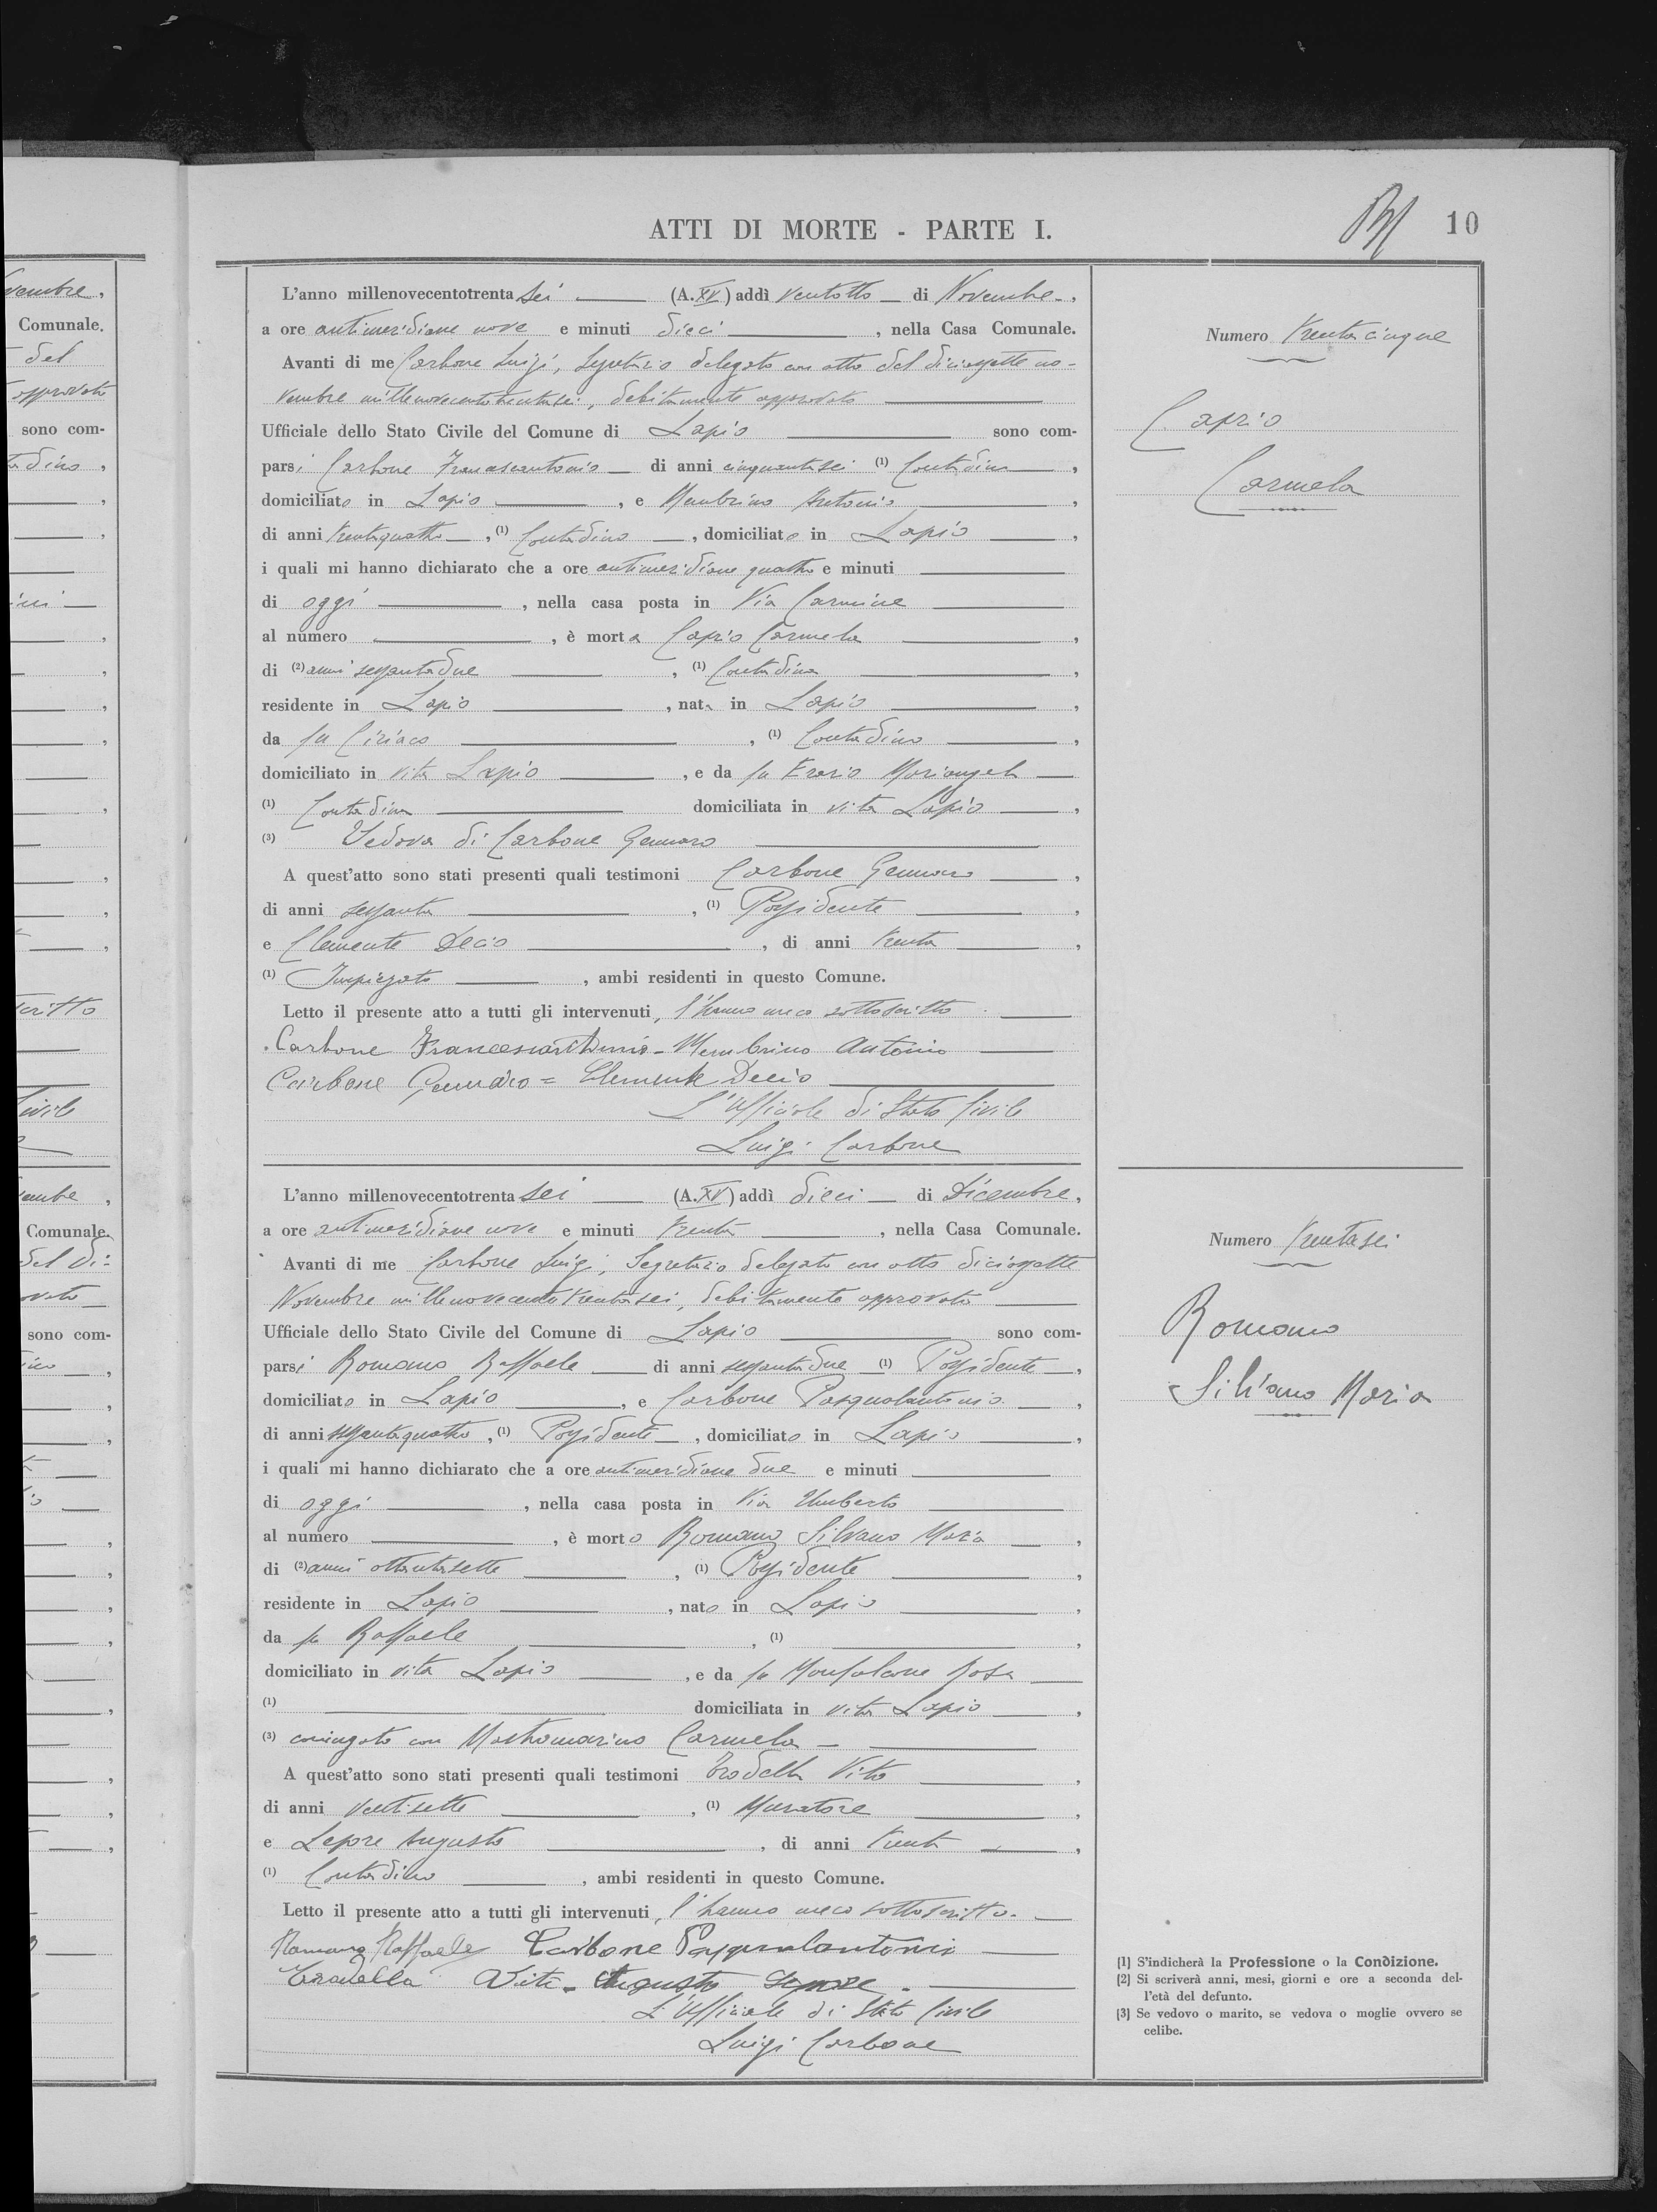 ATTI DI MORTE - PARTE I.
10
L'anno millenovecentotrenta sei (A. XV) addì ventotto di Novembre,
a ore antimeridiane nove e minuti dieci, nella Casa Comunale.
Avanti di me Carbone Luigi, Segretario delegato con atto del diciassette no-
vembre millenovecentotrentasei, debitamente approvato
Ufficiale dello Stato Civile del Comune di Lapio sono com-
parsi Carbone Francescantonio di anni cinquantasei (1) Contadino,
domiciliato in Lapio, e Membrino Antonio,
di anni trentaquattro, (1) Contadino, domiciliato in Lapio,
i quali mi hanno dichiarato che a ore antimeridiane quattro e minuti
di oggi, nella casa posta in Via Carmine
al numero, è morta Caprio Carmela,
di (2) anni sessantadue, (1) Contadina,
residente in Lapio, nata in Lapio,
da fu Ciriaco, (1) Contadino,
domiciliato in vita Lapio, e da fu Erario Mariangela
(1) Contadina domiciliata in vita Lapio,
(3) Vedova di Carbone Gennaro
A quest'atto sono stati presenti quali testimoni Carbone Gennaro,
di anni sessanta, (1) Possidente,
e Clemente Decio, di anni trenta,
(1) Impiegato, ambi residenti in questo Comune.
Letto il presente atto a tutti gli intervenuti, l'hanno meco sottoscritto.
Carbone Francescantonio - Membrino Antonio
Carbone Gennaro = Clemente Decio
L'Ufficiale di Stato Civile
Luigi Carbone
Numero trentacinque
Caprio
Carmela
L'anno millenovecentotrenta sei (A. XV) addì dieci di Dicembre,
a ore antimeridiane nove e minuti trenta, nella Casa Comunale.
Avanti di me Carbone Luigi, Segretario delegato con atto diciassette
Novembre millenovecentotrentasei, debitamente approvato
Ufficiale dello Stato Civile del Comune di Lapio sono com-
parsi Romano Raffaele di anni sessantadue (1) Possidente,
domiciliato in Lapio, e Carbone Pasqualantonio,
di anni sessantaquattro, (1) Possidente, domiciliato in Lapio,
i quali mi hanno dichiarato che a ore antimeridiane due e minuti
di oggi, nella casa posta in Via Umberto
al numero, è morto Romano Silvano Maria,
di (2) anni ottantasette, (1) Possidente,
residente in Lapio, nato in Lapio,
da fu Raffaele, (1),
domiciliato in vita Lapio, e da fu Monfalcone Rosa
(1) domiciliata in vita Lapio,
(3) coniugato con Mastromarino Carmela
A quest'atto sono stati presenti quali testimoni Trodella Vito,
di anni ventisette, (1) Muratore,
e Lepore Augusto, di anni trenta,
(1) Contadino, ambi residenti in questo Comune.
Letto il presente atto a tutti gli intervenuti, l'hanno meco sottoscritto.
Romano Raffaele Carbone Pasqualantonio
Vito - Augusto Lepore.
L'Ufficiale di Stato Civile
Luigi Carbone
Numero trentasei
Romano
Silvano Maria
(1) S'indicherà la Professione o la Condizione.
(2) Si scriverà anni, mesi, giorni e ore a seconda del-
l'età del defunto.
(3) Se vedovo o marito, se vedova o moglie ovvero se
celibe.